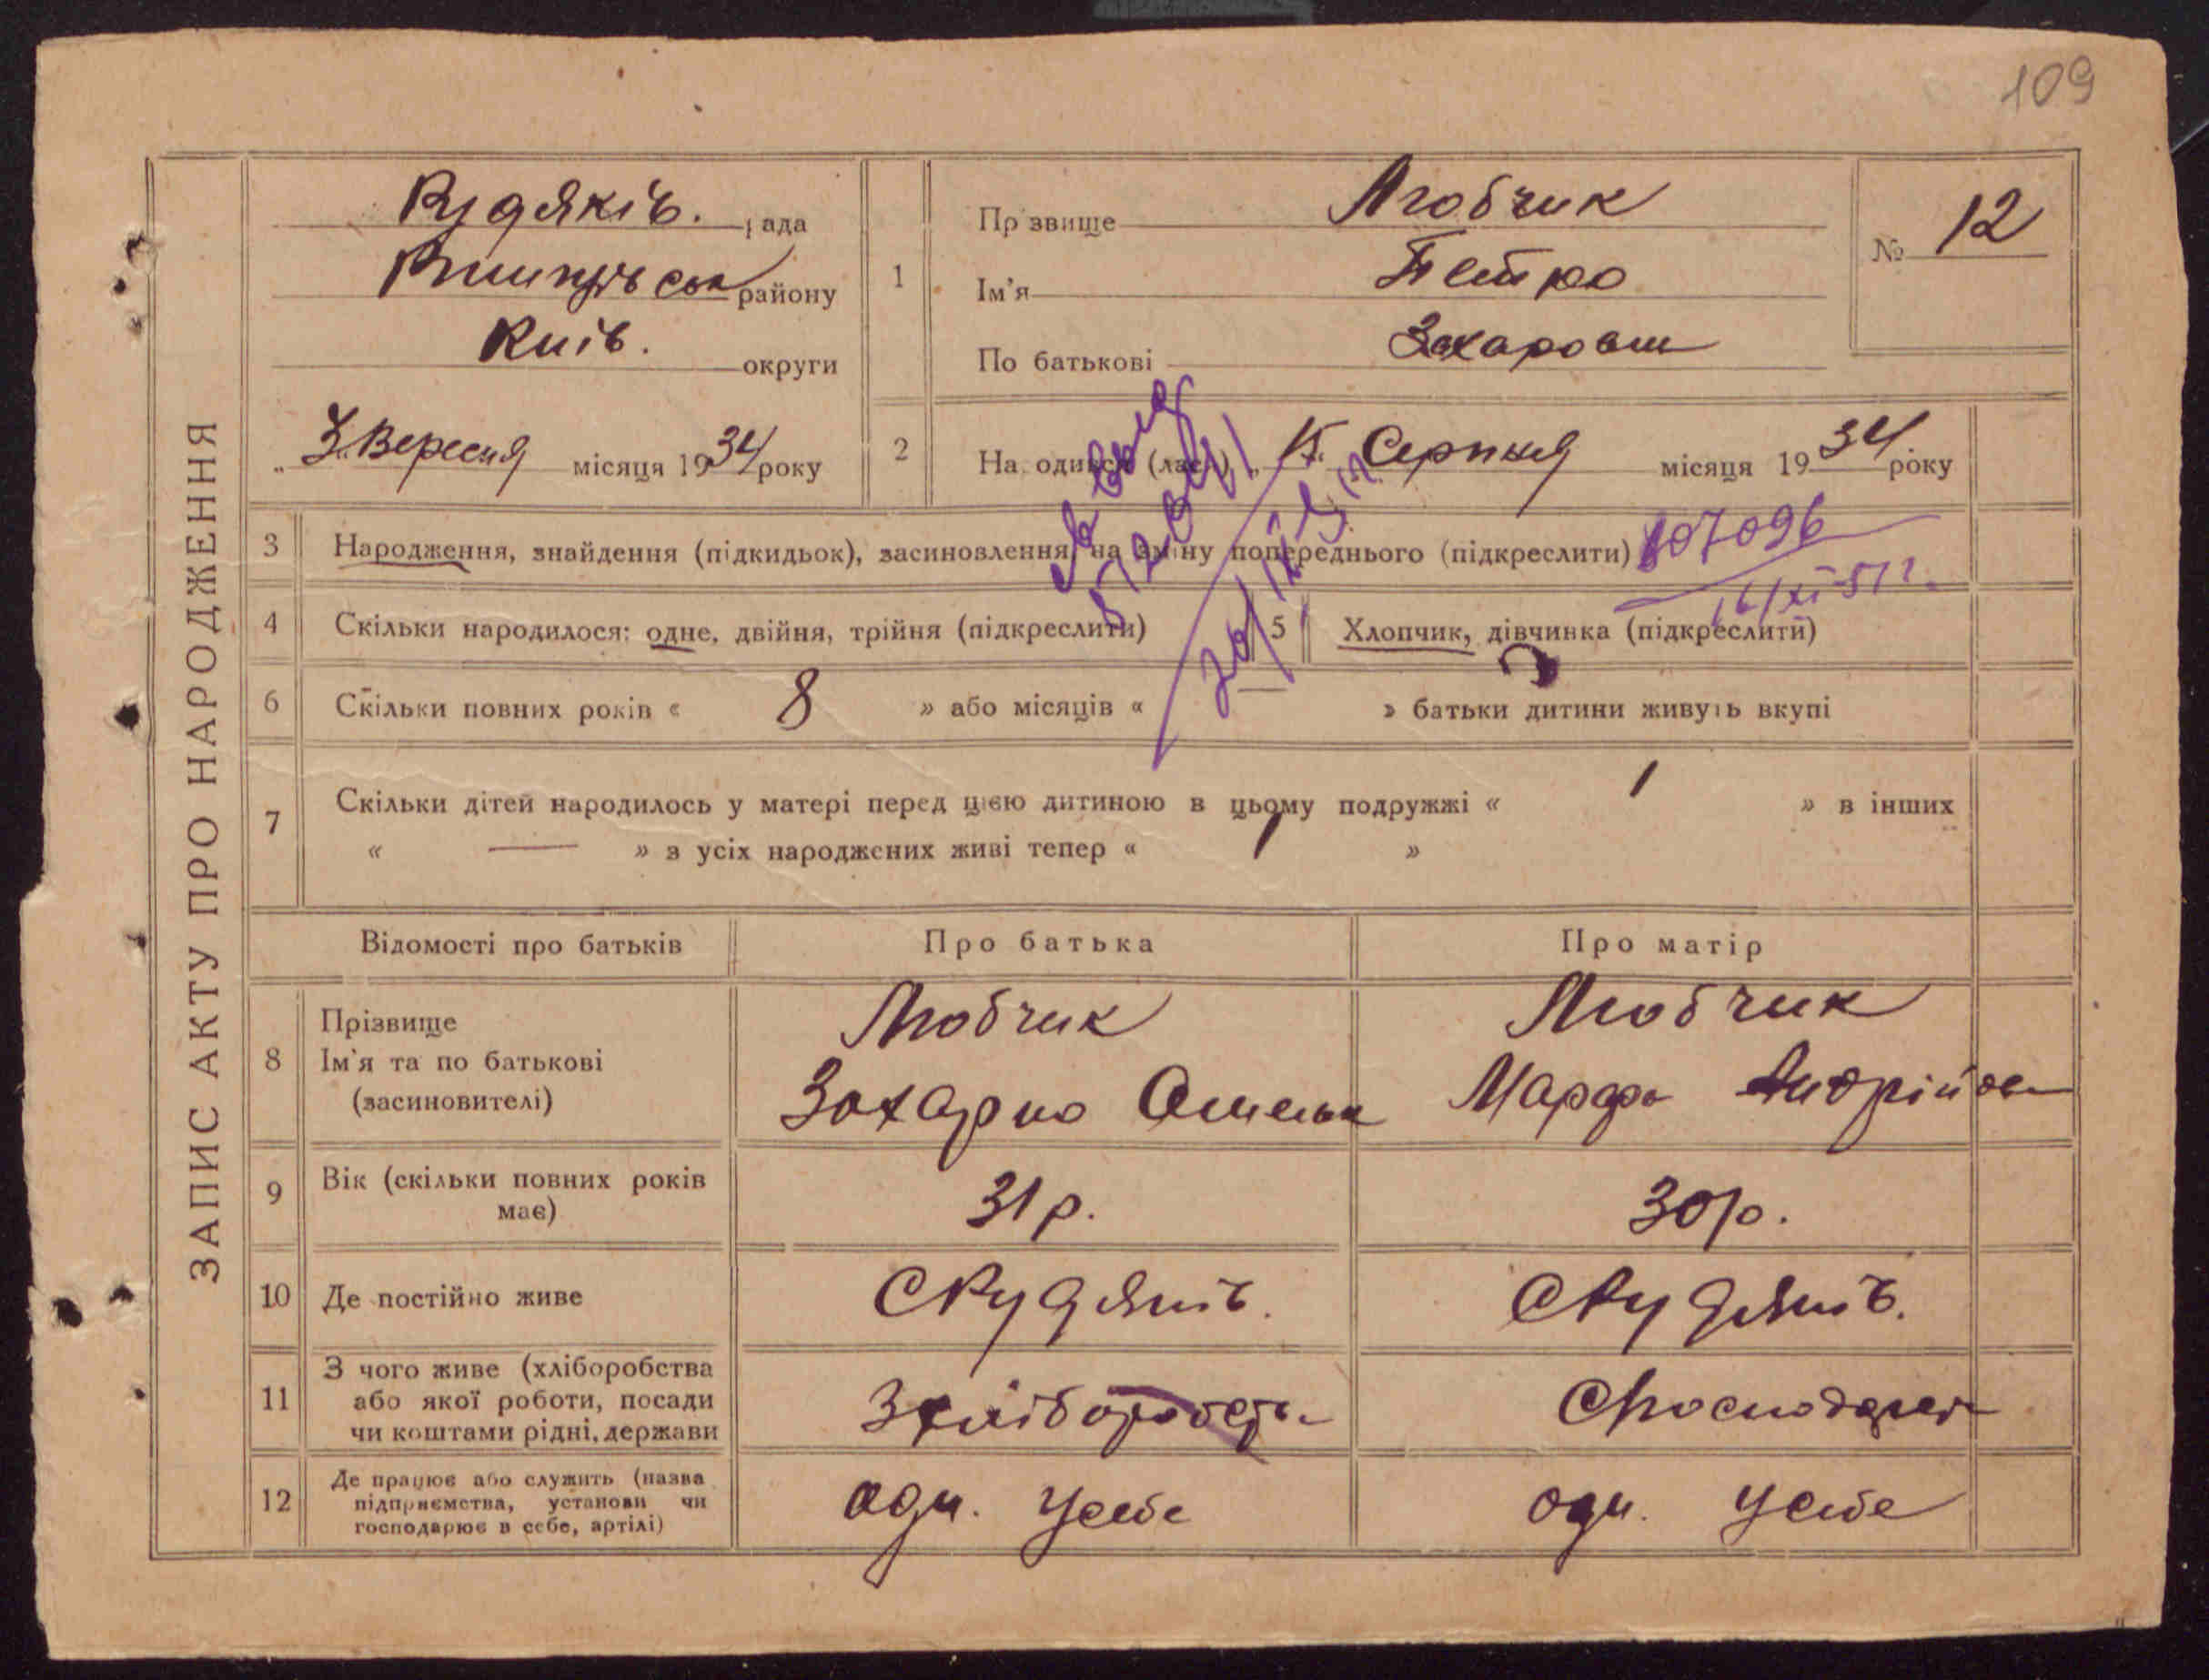 109
ЗАПИС АКТУ ПРО НАРОДЖЕННЯ
Рудяків. рада
району
Київ. округи
„3" Вересня місяця 1934 року
1
Прізвище Любчик
Ім'я Петро
По батькові Захарович
№ 12
2 На одився (лась) „15" Серпня місяця 1934 року
3 Народження, знайдення (підкидьок), засиновлення, на зміну попереднього (підкреслити)
107096
4 Скільки народилося: одне, двійня, трійня (підкреслити) 5 Хлопчик, дівчинка (підкреслити)
6 Скільки повних років « 8 » або місяців « — » батьки дитини живуть вкупі
7 Скільки дітей народилось у матері перед цією дитиною в цьому подружжі « 1 » в інших
« — » з усіх народжених живі тепер « 1 »
Відомості про батьків Про батька Про матір
8 Прізвище Любчик Любчик
Ім'я та по батькові
(засиновителі) Захарко Омельк Марфа Андрійов
9 Вік (скільки повних років має) 31 р. 30 р.
10 Де постійно живе С Рудяків. С Рудяків.
11 З чого живе (хліборобства
або якої роботи, посади
чи коштами рідні, держави
З хліборобств Господарст
12 Де працює або служить (назва
підприємства, установи чи
господарює в себе, артілі)
одн. у себе одн. у себе